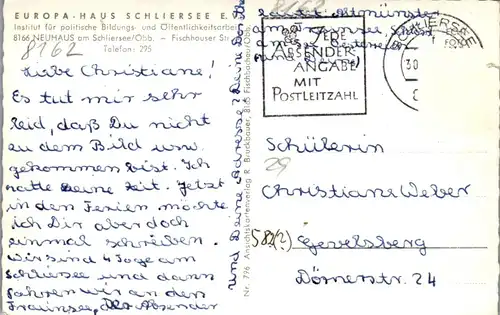 EUROPA-HAUS SCHLIERSEE E.
Institut für politische Bildungs- und Öffentlichkeitsarbeit
8166 NEUHAUS am Schliersee/Obb. – Fischhauser Str
Telefon: 295
8162
Liebe Christiane!
Es tut mir sehr
leid, daß Du nicht
zu dem Bild usw.
gekommen bist. Ich
hatte keine Zeit. Jetzt
in den Ferien möchte
ich Dir aber doch
einmal schreiben.
Wir sind 4 Tage am
Schliersee und dann
fahren wir an den
Traunsee. Absender
und Deine Adresse?
Nr. 776 Ansichtskartenverlag R. Bruckbauer, 8165 Fischbachau/Obb.
JEDER
ABSENDER-
ANGABE
MIT
POSTLEITZAHL
SCHLIERSEE
30
Schülerin
29
Christiane Weber
582(?) Gevelsberg
Dörnerstr. 24